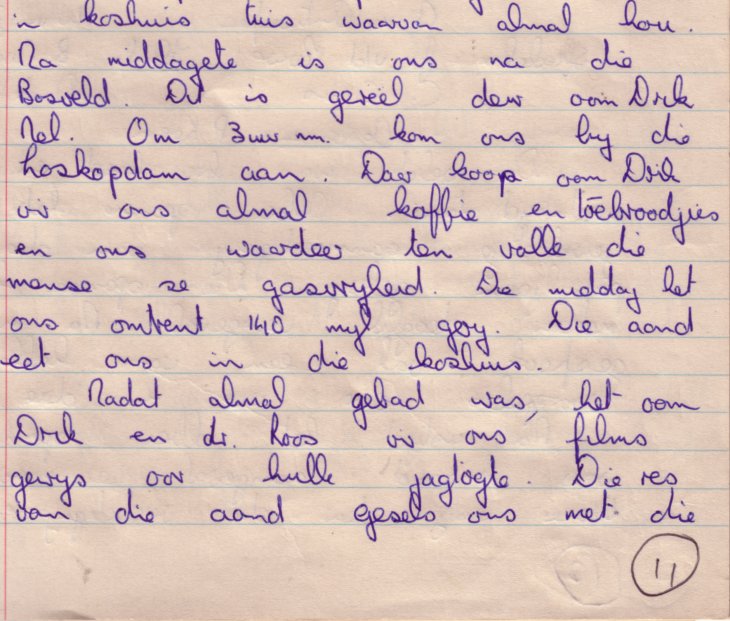 in koshuis tuis waarvan almal hou.
Na middagete is ons na die
Bosveld. Dit is gereël deur oom Dirk
Nel. Om 3 uur nm. kom ons by die
Loskopdam aan. Daar koop oom Dirk
vir ons almal koffie en toebroodjies
en ons waardeer ten volle die
mense se gasvryheid. Die middag het
ons omtrent 140 myl gery. Die aand
eet ons in die koshuis.
Nadat almal gebad was, het oom
Dirk en dr. Roos vir ons films
gewys oor hulle jagtogte. Die res
van die aand gesels ons met die
11